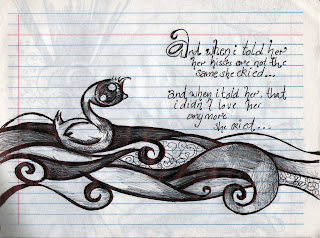 And when i told her
her kisses are not the
same she cried...
and when i told her that
i didn't love her
anymore
she cried....